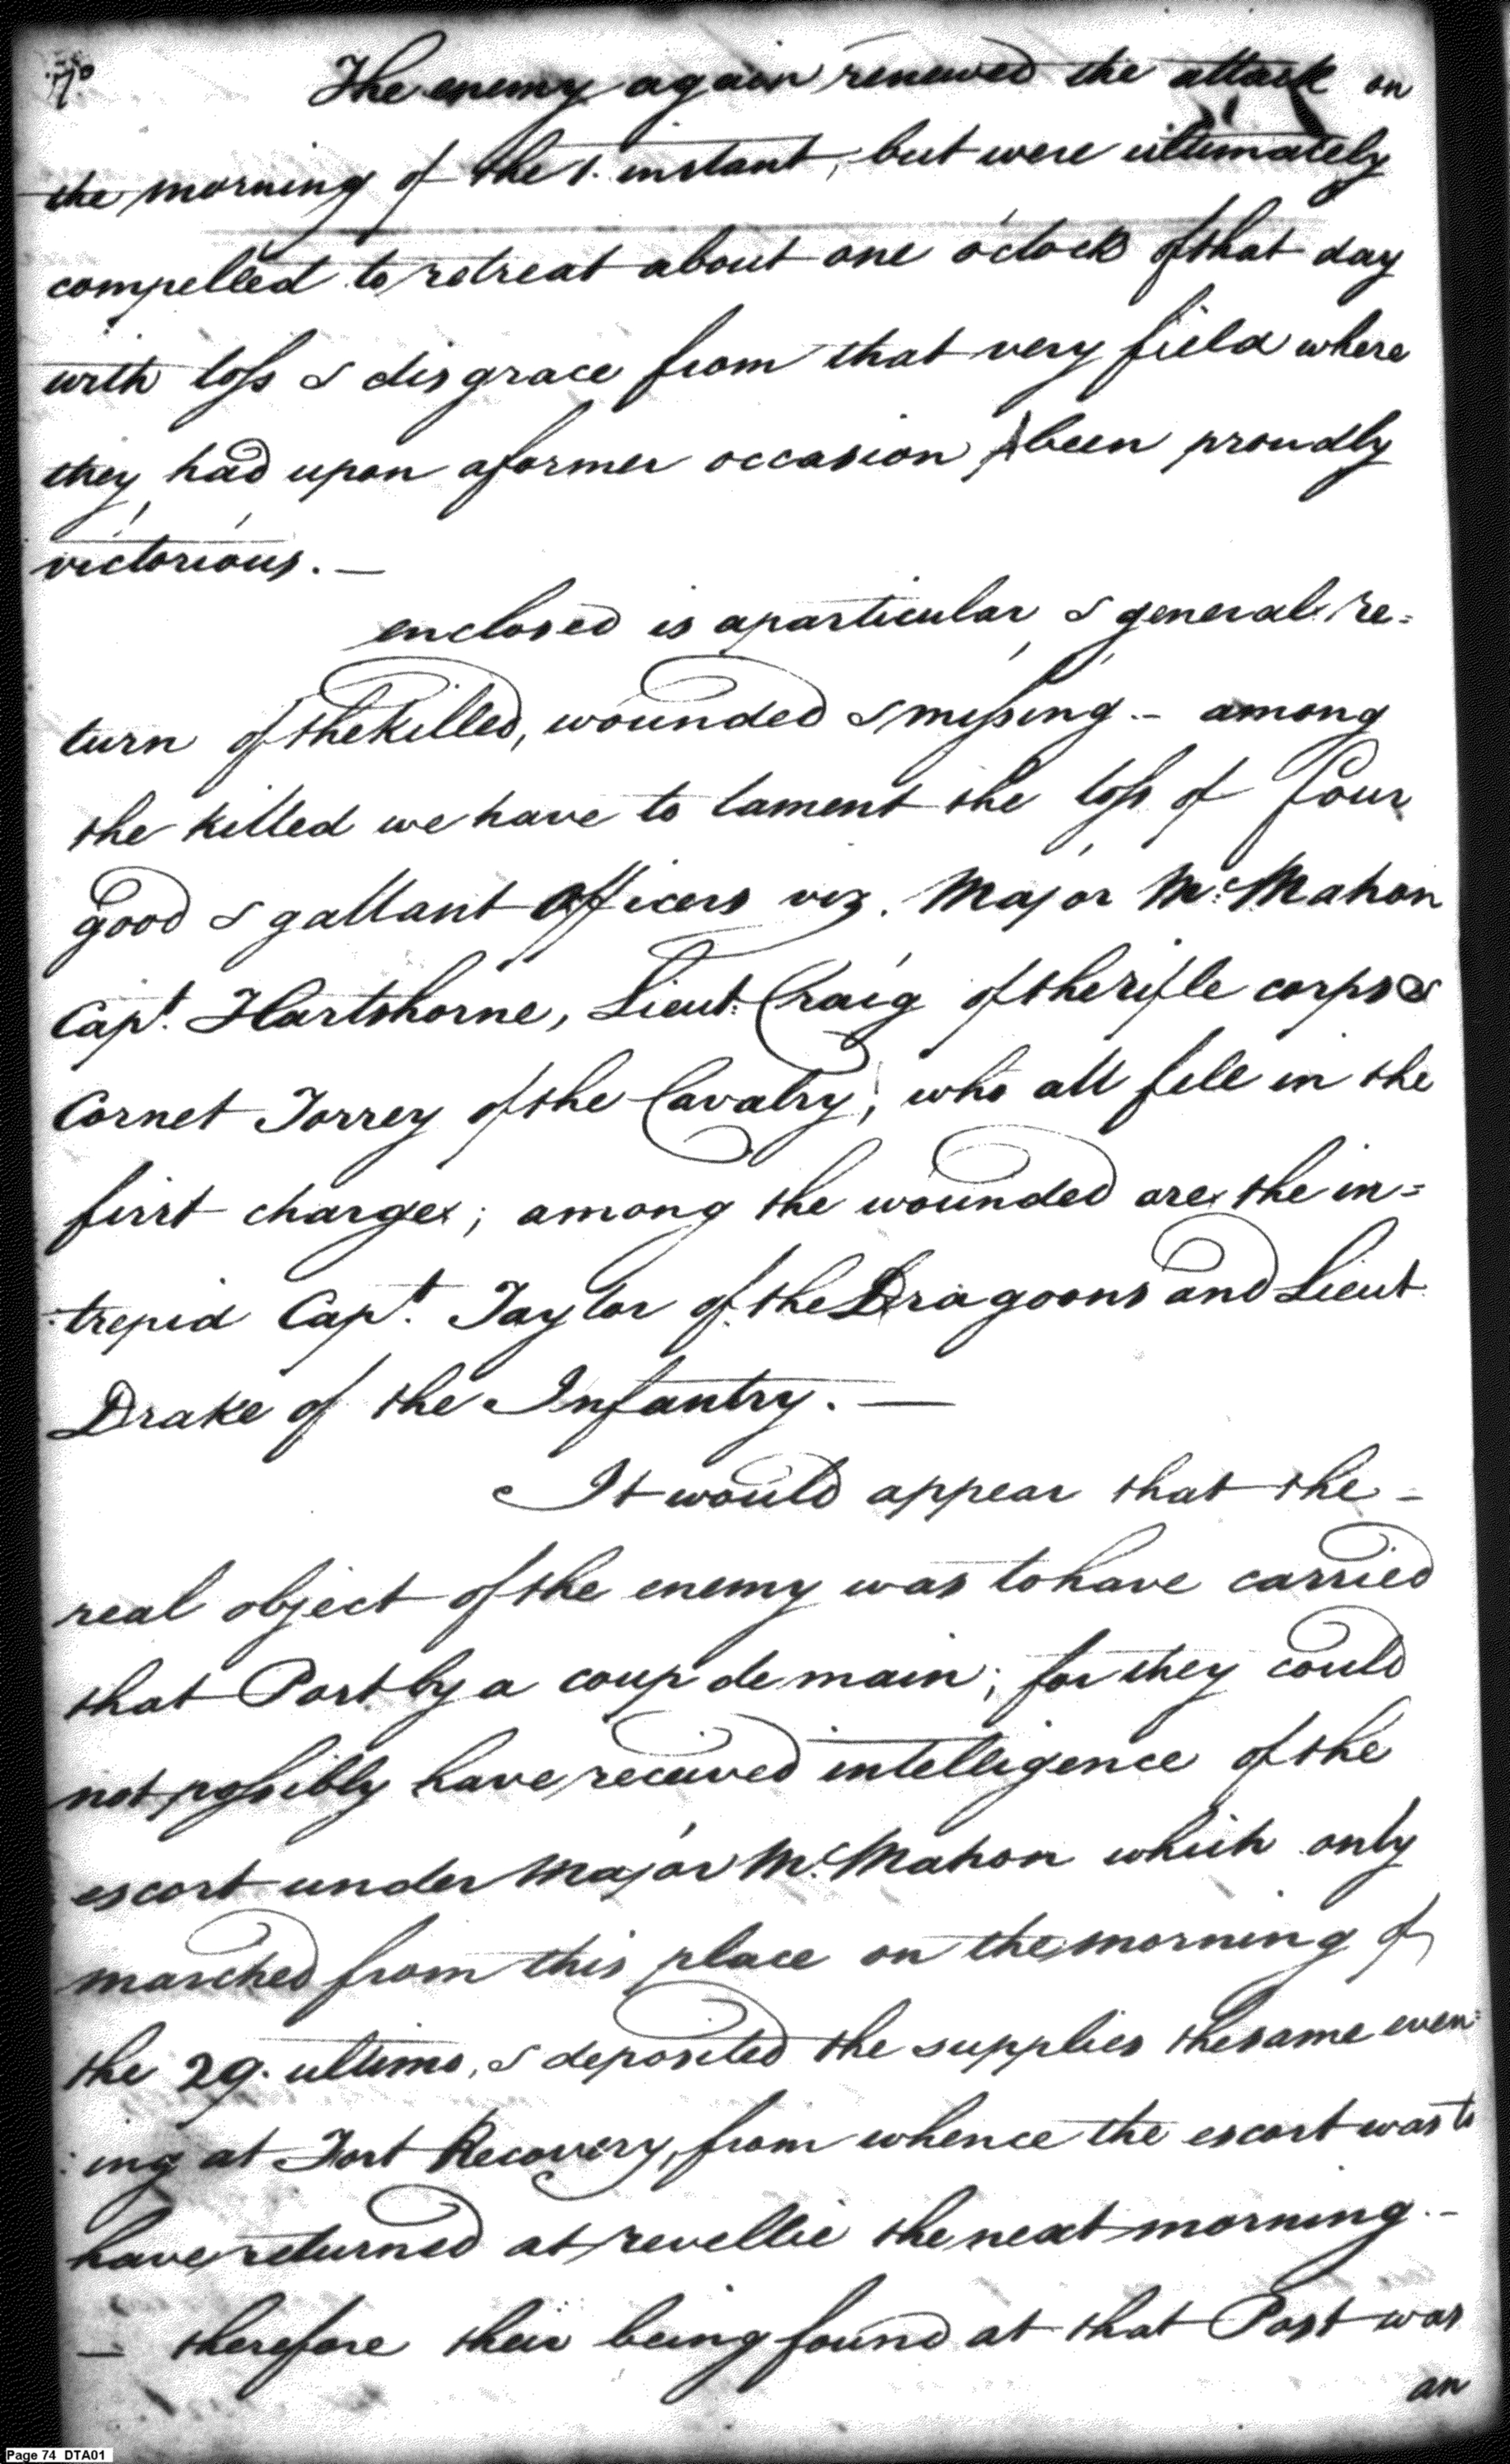 The enemy again renewed the attack on
the morning of the 1. instant, but were ultimately
compelled to retreat about one o'clock of that day
with loss & disgrace from that very field where
they had upon a former occasion been proudly
victorious. —
enclosed is a particular & general re=
turn of the killed, wounded & missing - among
the killed we have to lament the loss of four
good & gallant Officers viz. Major McMahon
Capt. Hartshorne, Lieut. Craig of the rifle corps &
Cornet Torrey of the Cavalry, who all fell in the
first charge; among the wounded are the in=
:trepid Capt. Taylor of the Dragoons and Lieut
Drake of the Infantry. —
It would appear that the -
real object of the enemy was to have carried
that Post by a coup de main; for they could
not possibly have received intelligence of the
escort under Major McMahon which only
marched from this place on the morning of
the 29. ultimo, & deposited the supplies the same even:
:ing at Fort Recovery, from whence the escort was to
have returned at revellie the next morning -
— therefore their being found at that Post was
an
Page 74 DTA01